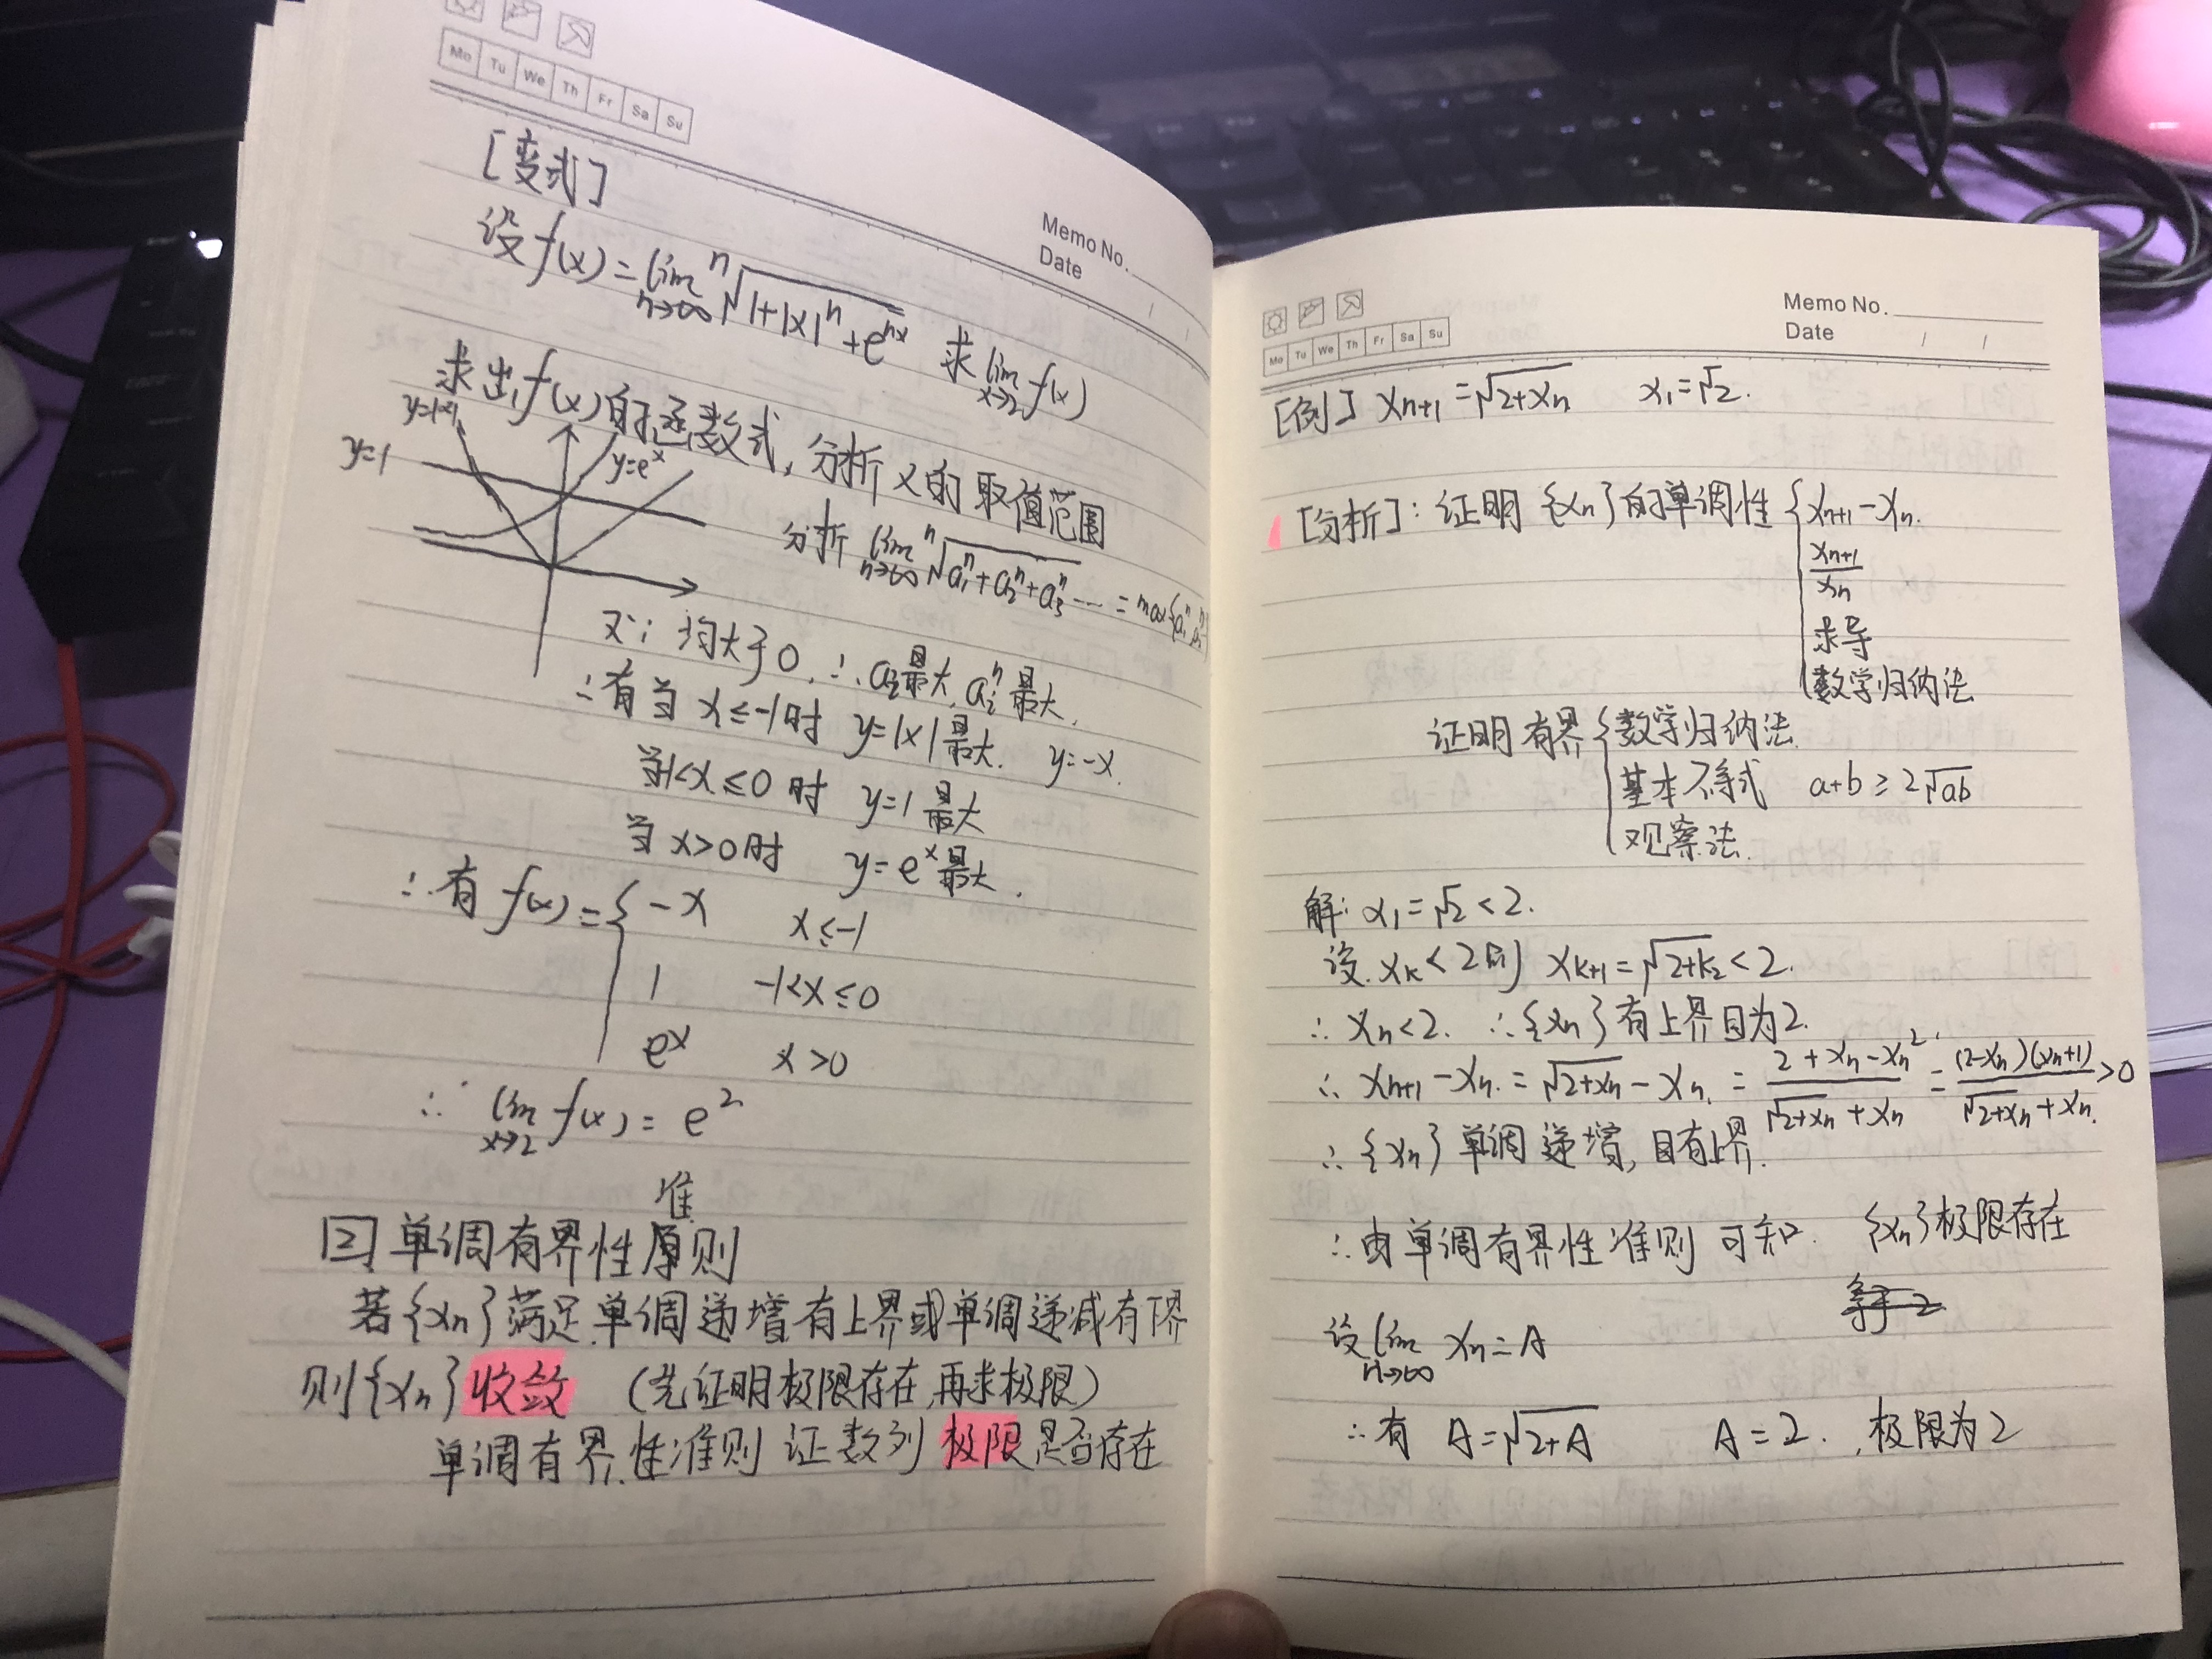 Mo Tu We Th Fr Sa Su
Memo No.
Date / /
[变式]
设 f(x)=lim n→∞ ⁿ√(1+|x|ⁿ+eⁿˣ) 求 lim x→2 f(x)
求出f(x)的函数式,分析x的取值范围
y=|x|
y=1
y=eˣ
分析 lim n→∞ ⁿ√(a₁ⁿ+a₂ⁿ+a₃ⁿ…) = max{a₁ⁿ
又∵均大于0,∴aᵢ最大,aᵢⁿ最大,
∴有当x≤-1时 y=|x|最大. y=-x.
当-1<x≤0时 y=1最大
当x>0时 y=eˣ最大.
∴有 f(x)={ -x x≤-1
1 -1<x≤0
eˣ x>0
∴ lim x→2 f(x)=e²
准
2 单调有界性原则
若{xn}满足单调递增有上界或单调递减有下界
则{xn}收敛 (先证明极限存在,再求极限)
单调有界性准则证数列极限是否存在
Mo Tu We Th Fr Sa Su
Memo No.
Date / /
[例] xn+1=√(2+xn) x₁=√2.
[分析]:证明{xn}的单调性{ xn+1-xn.
xn+1/xn
求导
数学归纳法
证明有界{数学归纳法.
基本不等式 a+b≥2√ab
观察法.
解: x₁=√2<2.
设.xk<2则 xk+1=√(2+k₂)<2.
∴xn<2. ∴{xn}有上界且为2.
∴ xn+1-xn.=√(2+xn)-xn.=(2+xn-xn²)/(√(2+xn)+xn)=(2-xn)(xn+1)/(√(2+xn)+xn.)>0
∴{xn}单调递增,且有上界.
∴由单调有界性准则可知. {xn}极限存在
等于2
设 lim n→∞ xn=A
∴有 A=√(2+A) A=2. ,极限为2